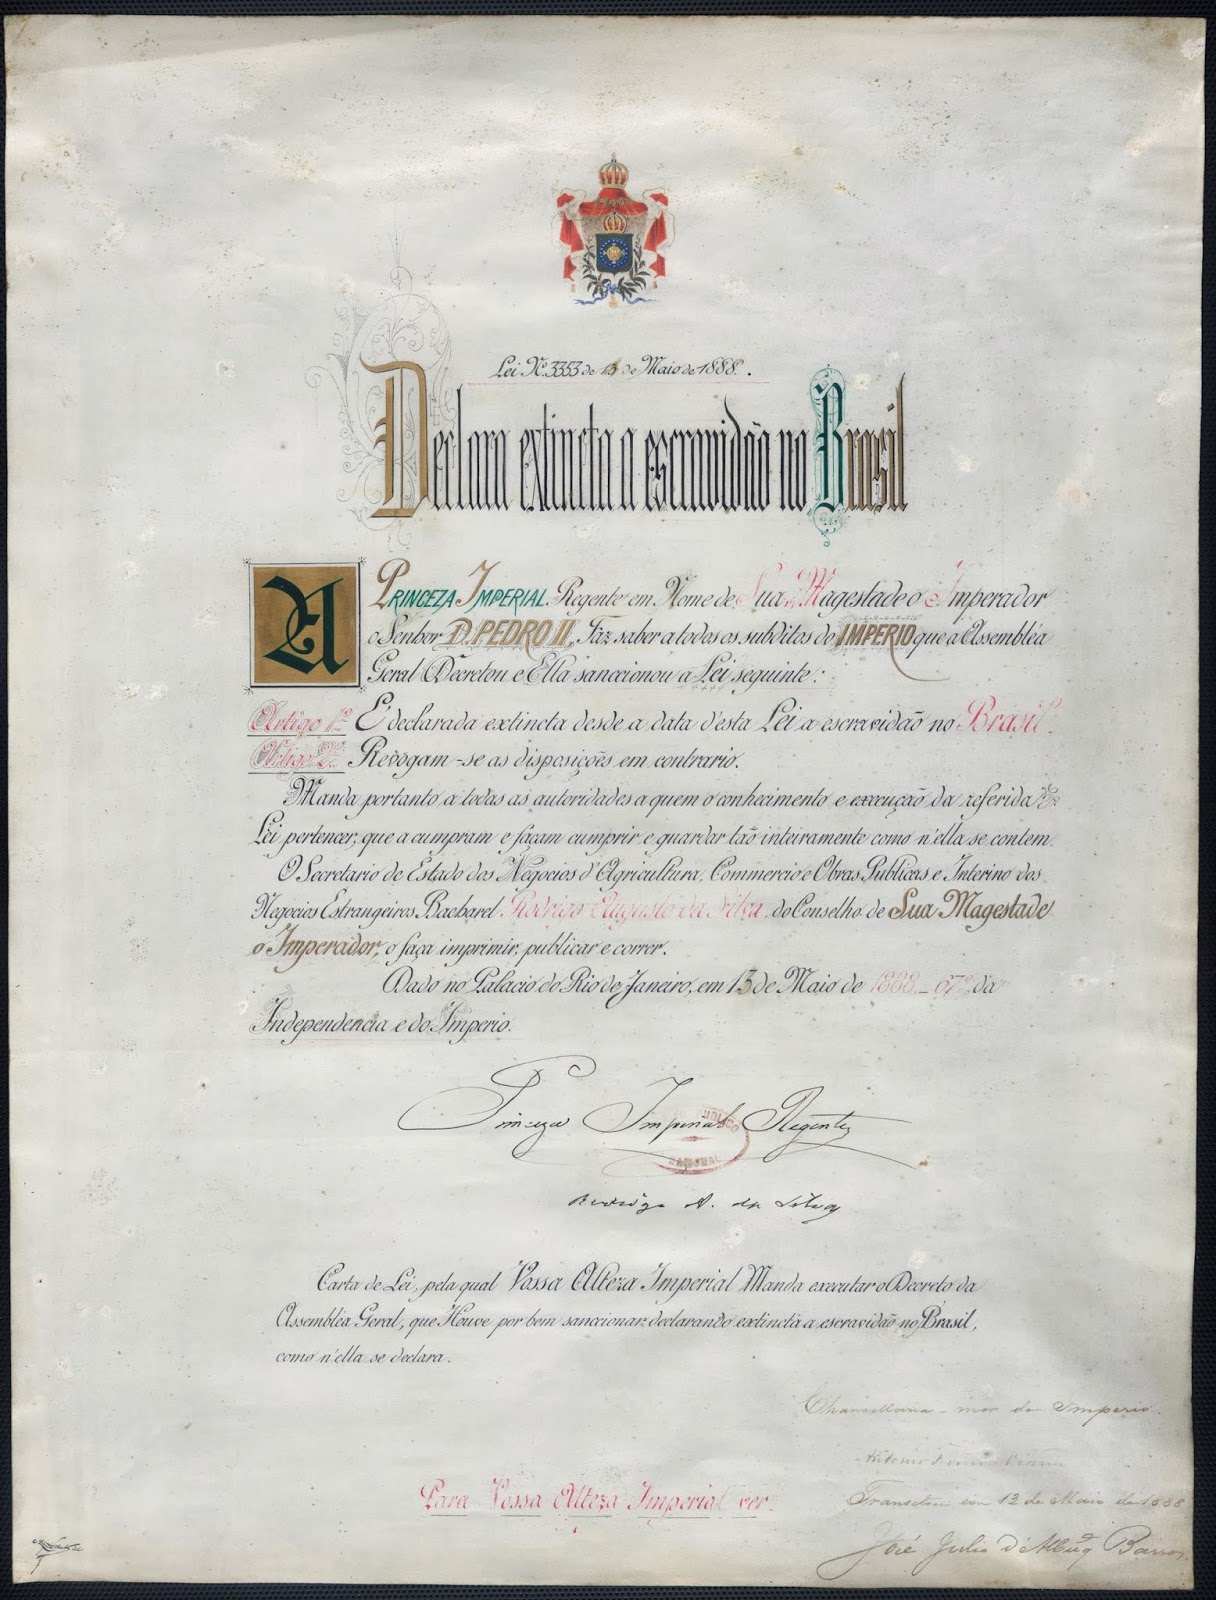 Lei Nº 3353 de 13 de Maio de 1888.
Declara extincta a escravidão no Brasil
A PRINCEZA IMPERIAL Regente em Nome de Sua Magestade o Imperador
o Senhor D. PEDRO II, Faz saber a todos os subditos do IMPERIO que a Assembléa
Geral Decretou e Ella sanccionou a Lei seguinte:
Artigo 1º É declarada extincta desde a data d'esta Lei a escravidão no Brasil.
Artigo 2º Revogam-se as disposições em contrario.
Manda portanto a todas as autoridades a quem o conhecimento e execução da referida
Lei pertencer, que a cumpram e façam cumprir e guardar tão inteiramente como n'ella se contem.
O Secretario de Estado dos Negocios d'Agricultura, Commercio e Obras Publicas e Interino dos
Negocios Estrangeiros Bacharel Rodrigo Augusto da Silva do Conselho de Sua Magestade
o Imperador, o faça imprimir, publicar e correr.
Dado no Palacio do Rio de Janeiro, em 13 de Maio de 1888 - 67º da
Independencia e do Imperio.
Princeza Imperial Regente
Rodrigo A. da Silva
Carta de Lei, pela qual Vossa Alteza Imperial Manda executar o Decreto da
Assembléa Geral, que Houve por bem sanccionar declarando extincta a escravidão no Brasil,
como n'ella se declara.
Chancellaria-mor do Imperio
Antonio
Para Vossa Alteza Imperial ver.
Transitou em 13 de Maio de 1888
José Julio d'Albuqe Barros